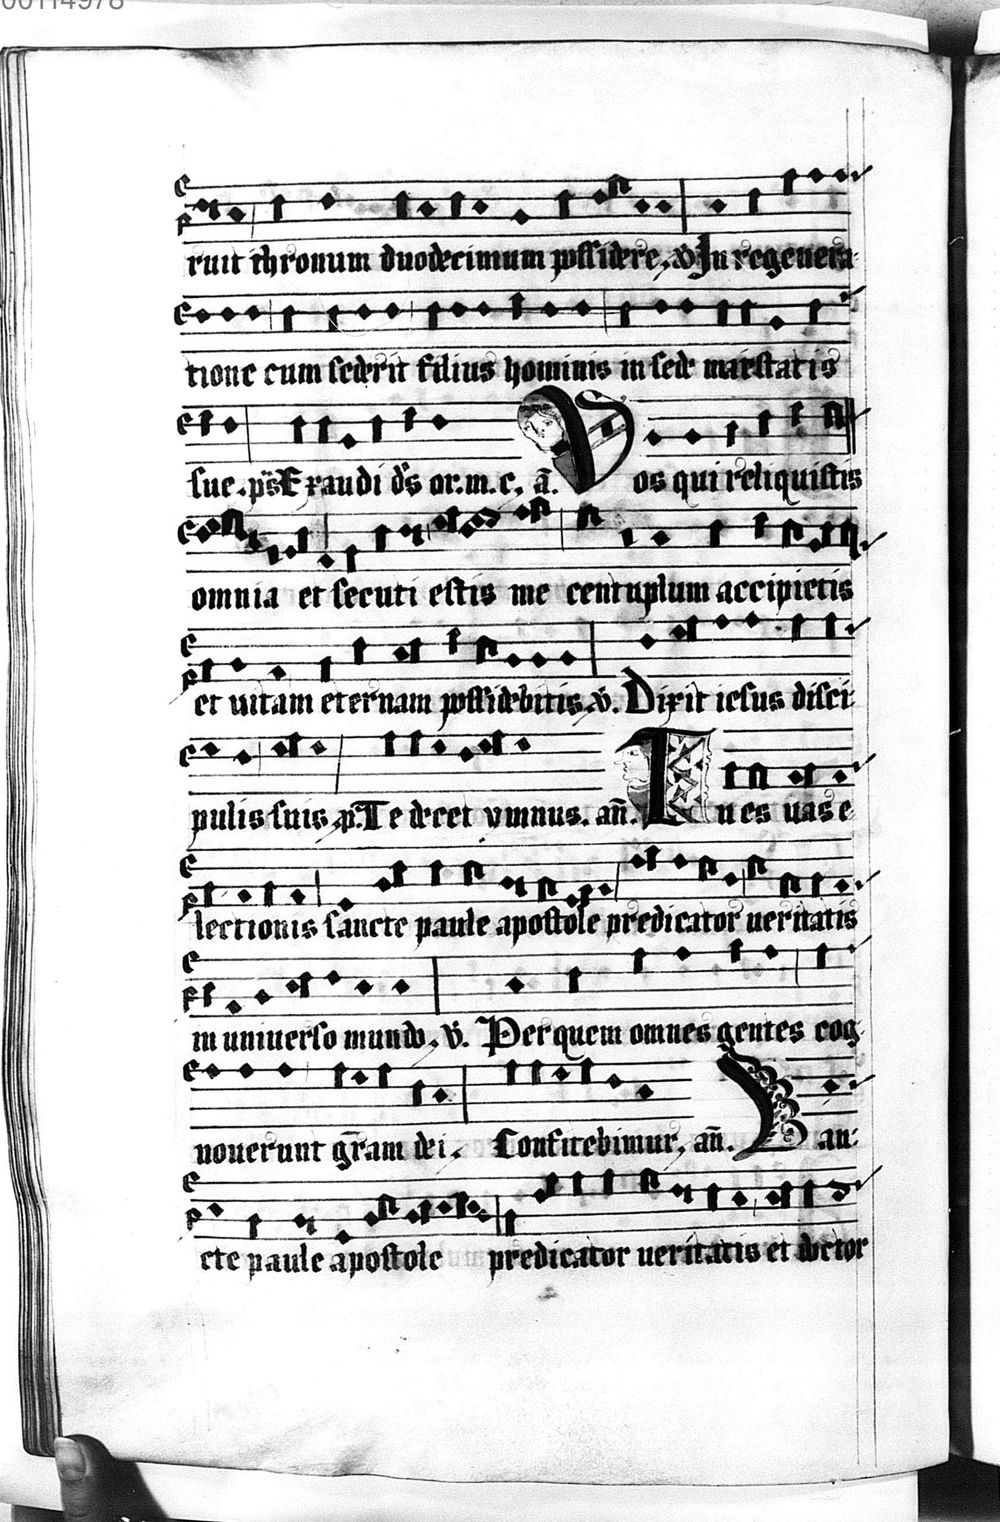 00114978
ruit thronum duodecimum possidere. V. In regenera-
tione cum sederit filius hominis in sede maiestatis
sue. ps. Exaudi ds or. m. c. a. Vos qui reliquistis
omnia et secuti estis me centuplum accipietis
et uitam eternam possidebitis. V. Dixit iesus disci-
pulis suis. p. Te decet ymnus. an. Tu es uas e-
lectionis sancte paule apostole predicator ueritatis
in uniuerso mundo. V. Per quem omnes gentes cog-
nouerunt gram dei. Confitebimur. an. San-
cte paule apostole predicator ueritatis et doctor